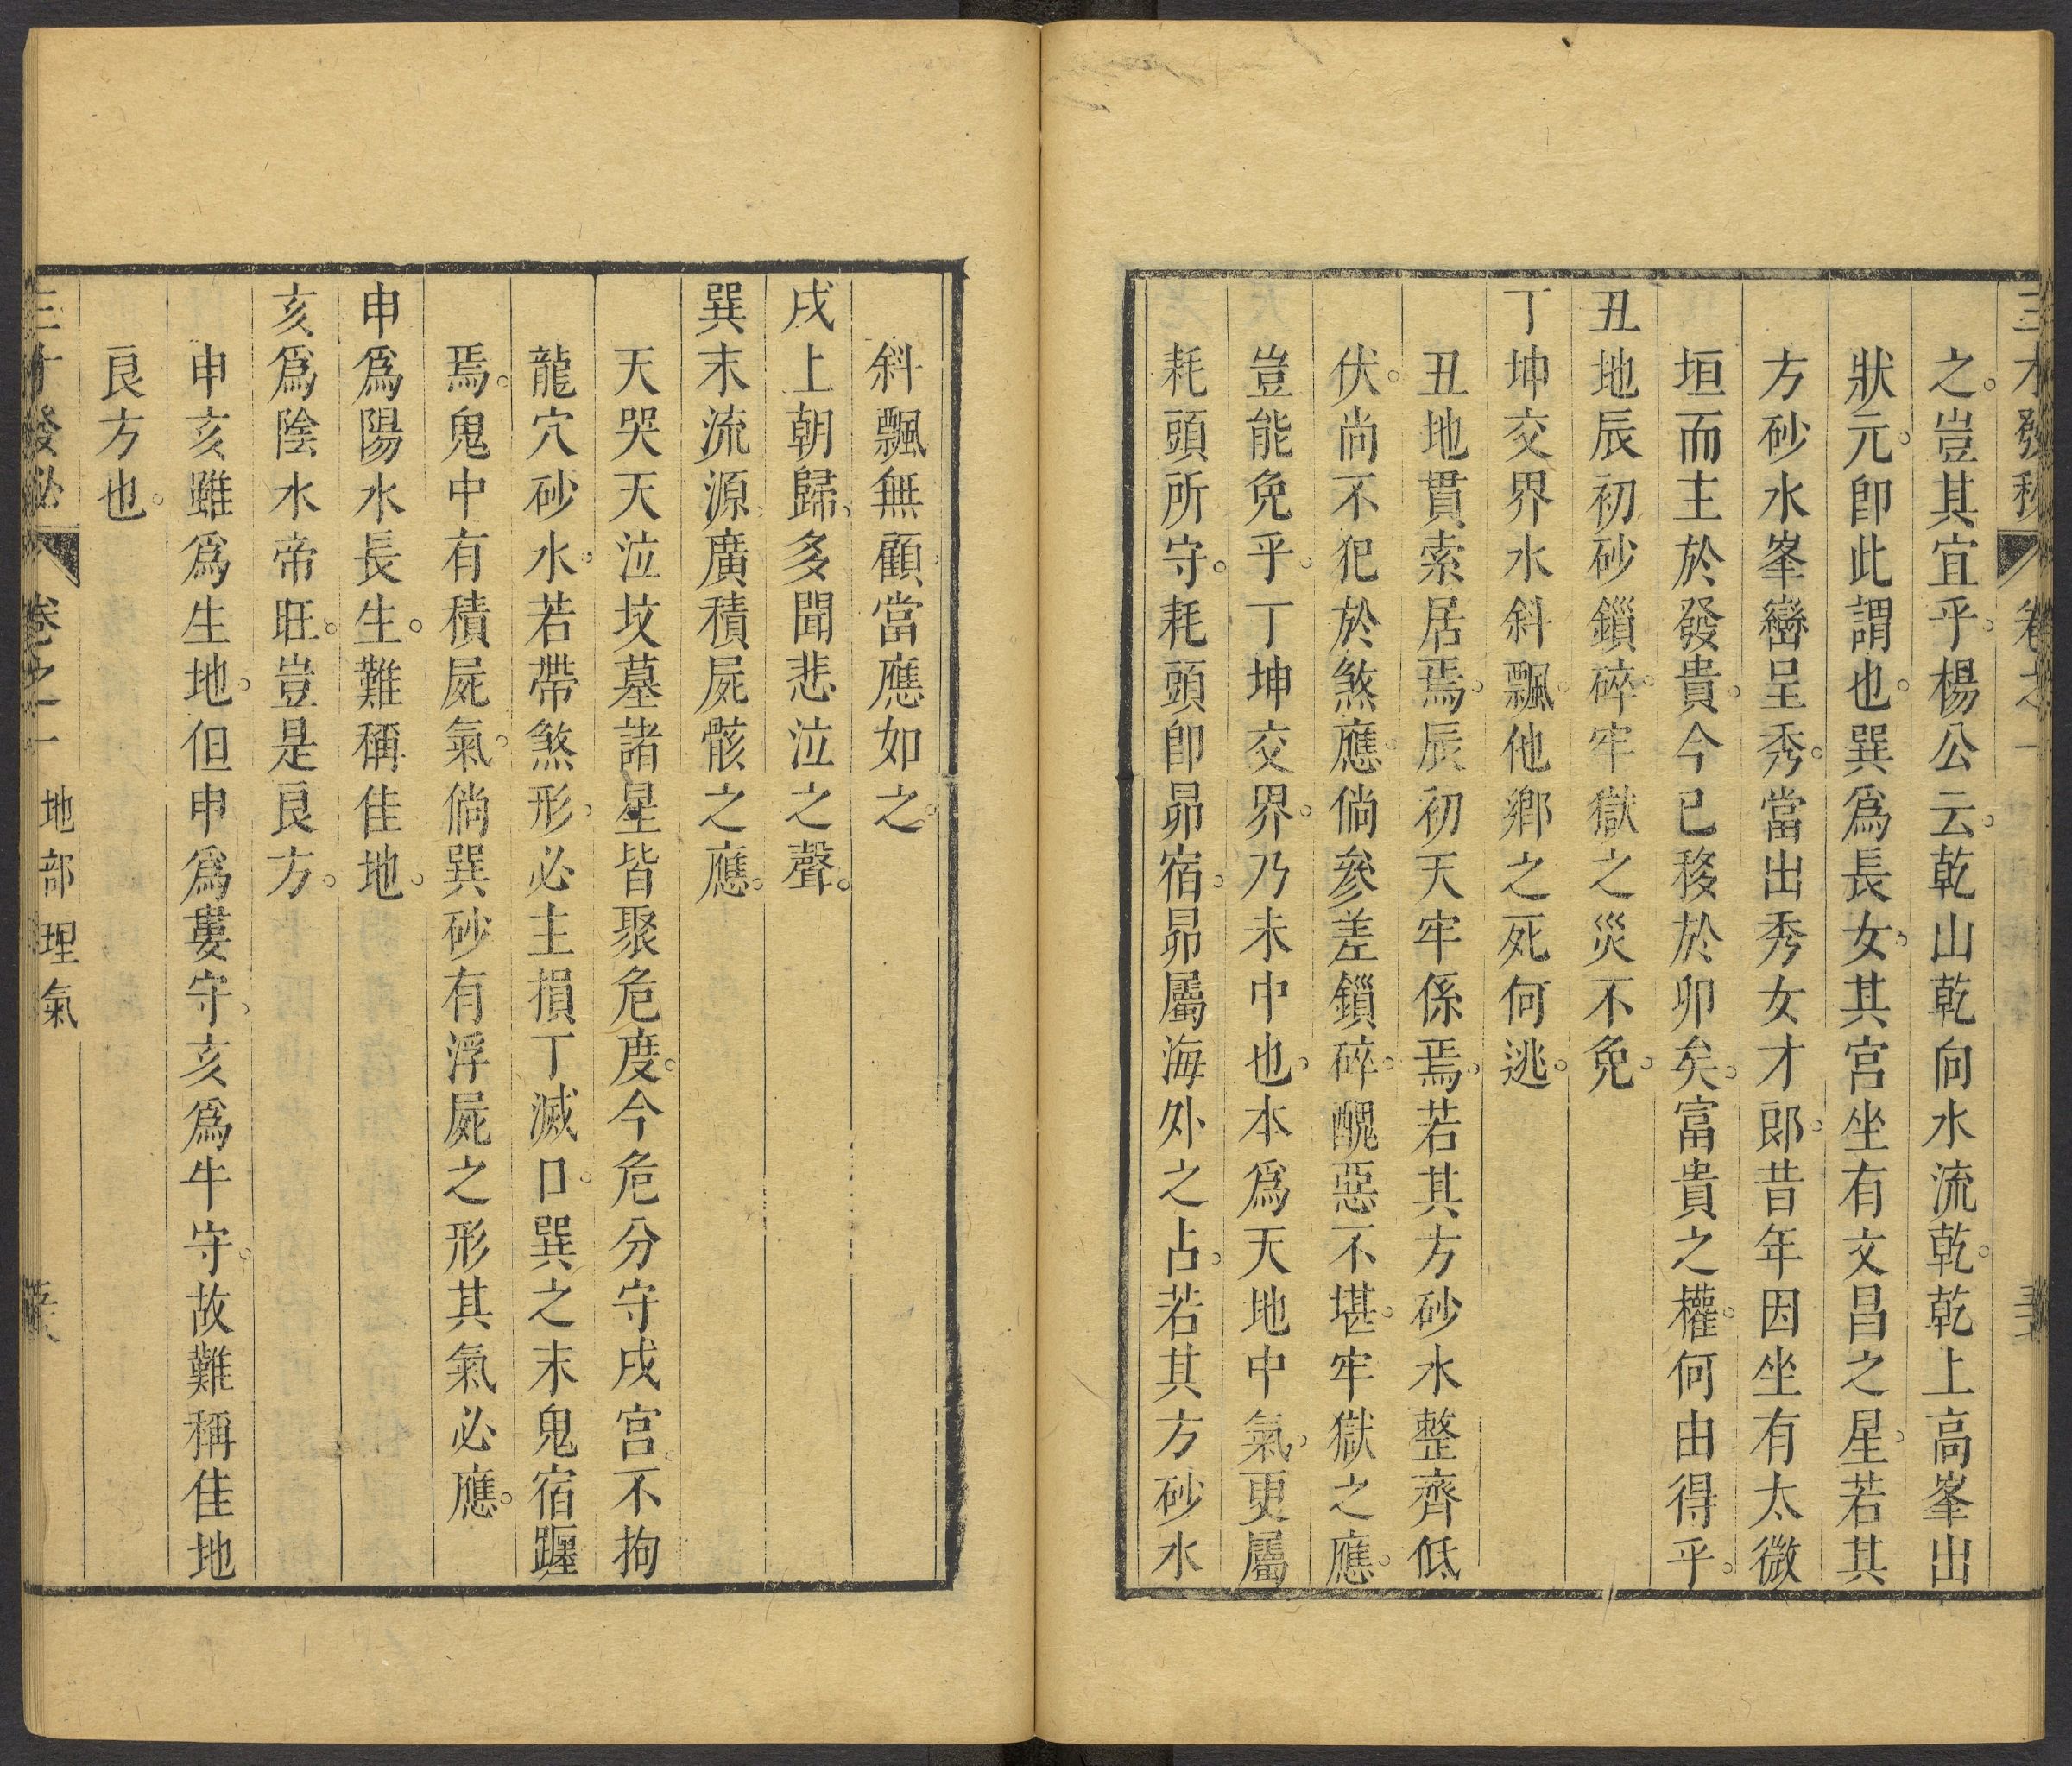 三才發秘 卷之一
之。豈其宜乎。楊公云。乾山乾向水流乾。乾上高峯出
狀元。卽此謂也。巽爲長女。其宮坐有文昌之星。若其
方砂水峯巒呈秀。當出秀女才郎。昔年因坐有太微
垣而主於發貴。今已移於卯矣。富貴之權。何由得乎。
丑地辰初砂鎖碎。牢獄之災不免。
丁坤交界水斜飄。他鄉之死何逃。
丑地貫索居焉。辰初天牢係焉。若其方砂水整齊低
伏。尚不犯於煞應。倘參差鎖碎。醜惡不堪。牢獄之應。
豈能免乎。丁坤交界。乃未中也。本爲天地中氣。更屬
耗頭所守。耗頭卽昴宿。昴屬海外之占。若其方砂水
斜飄無顧。當應如之。
戌上朝歸。多聞悲泣之聲。
巽末流源。廣積屍骸之應。
天哭天泣墳墓諸星皆聚危度。今危分守戌宮。不拘
龍穴砂水。若帶煞形。必主損丁滅口。巽之末鬼宿躔
焉。鬼中有積屍氣。倘巽砂有浮屍之形。其氣必應。
申爲陽水長生。難稱佳地。
亥爲陰水帝旺。豈是良方。
申亥雖爲生地。但申爲婁守。亥爲牛守。故難稱佳地
良方也。
三才發秘 卷之一 地部理氣